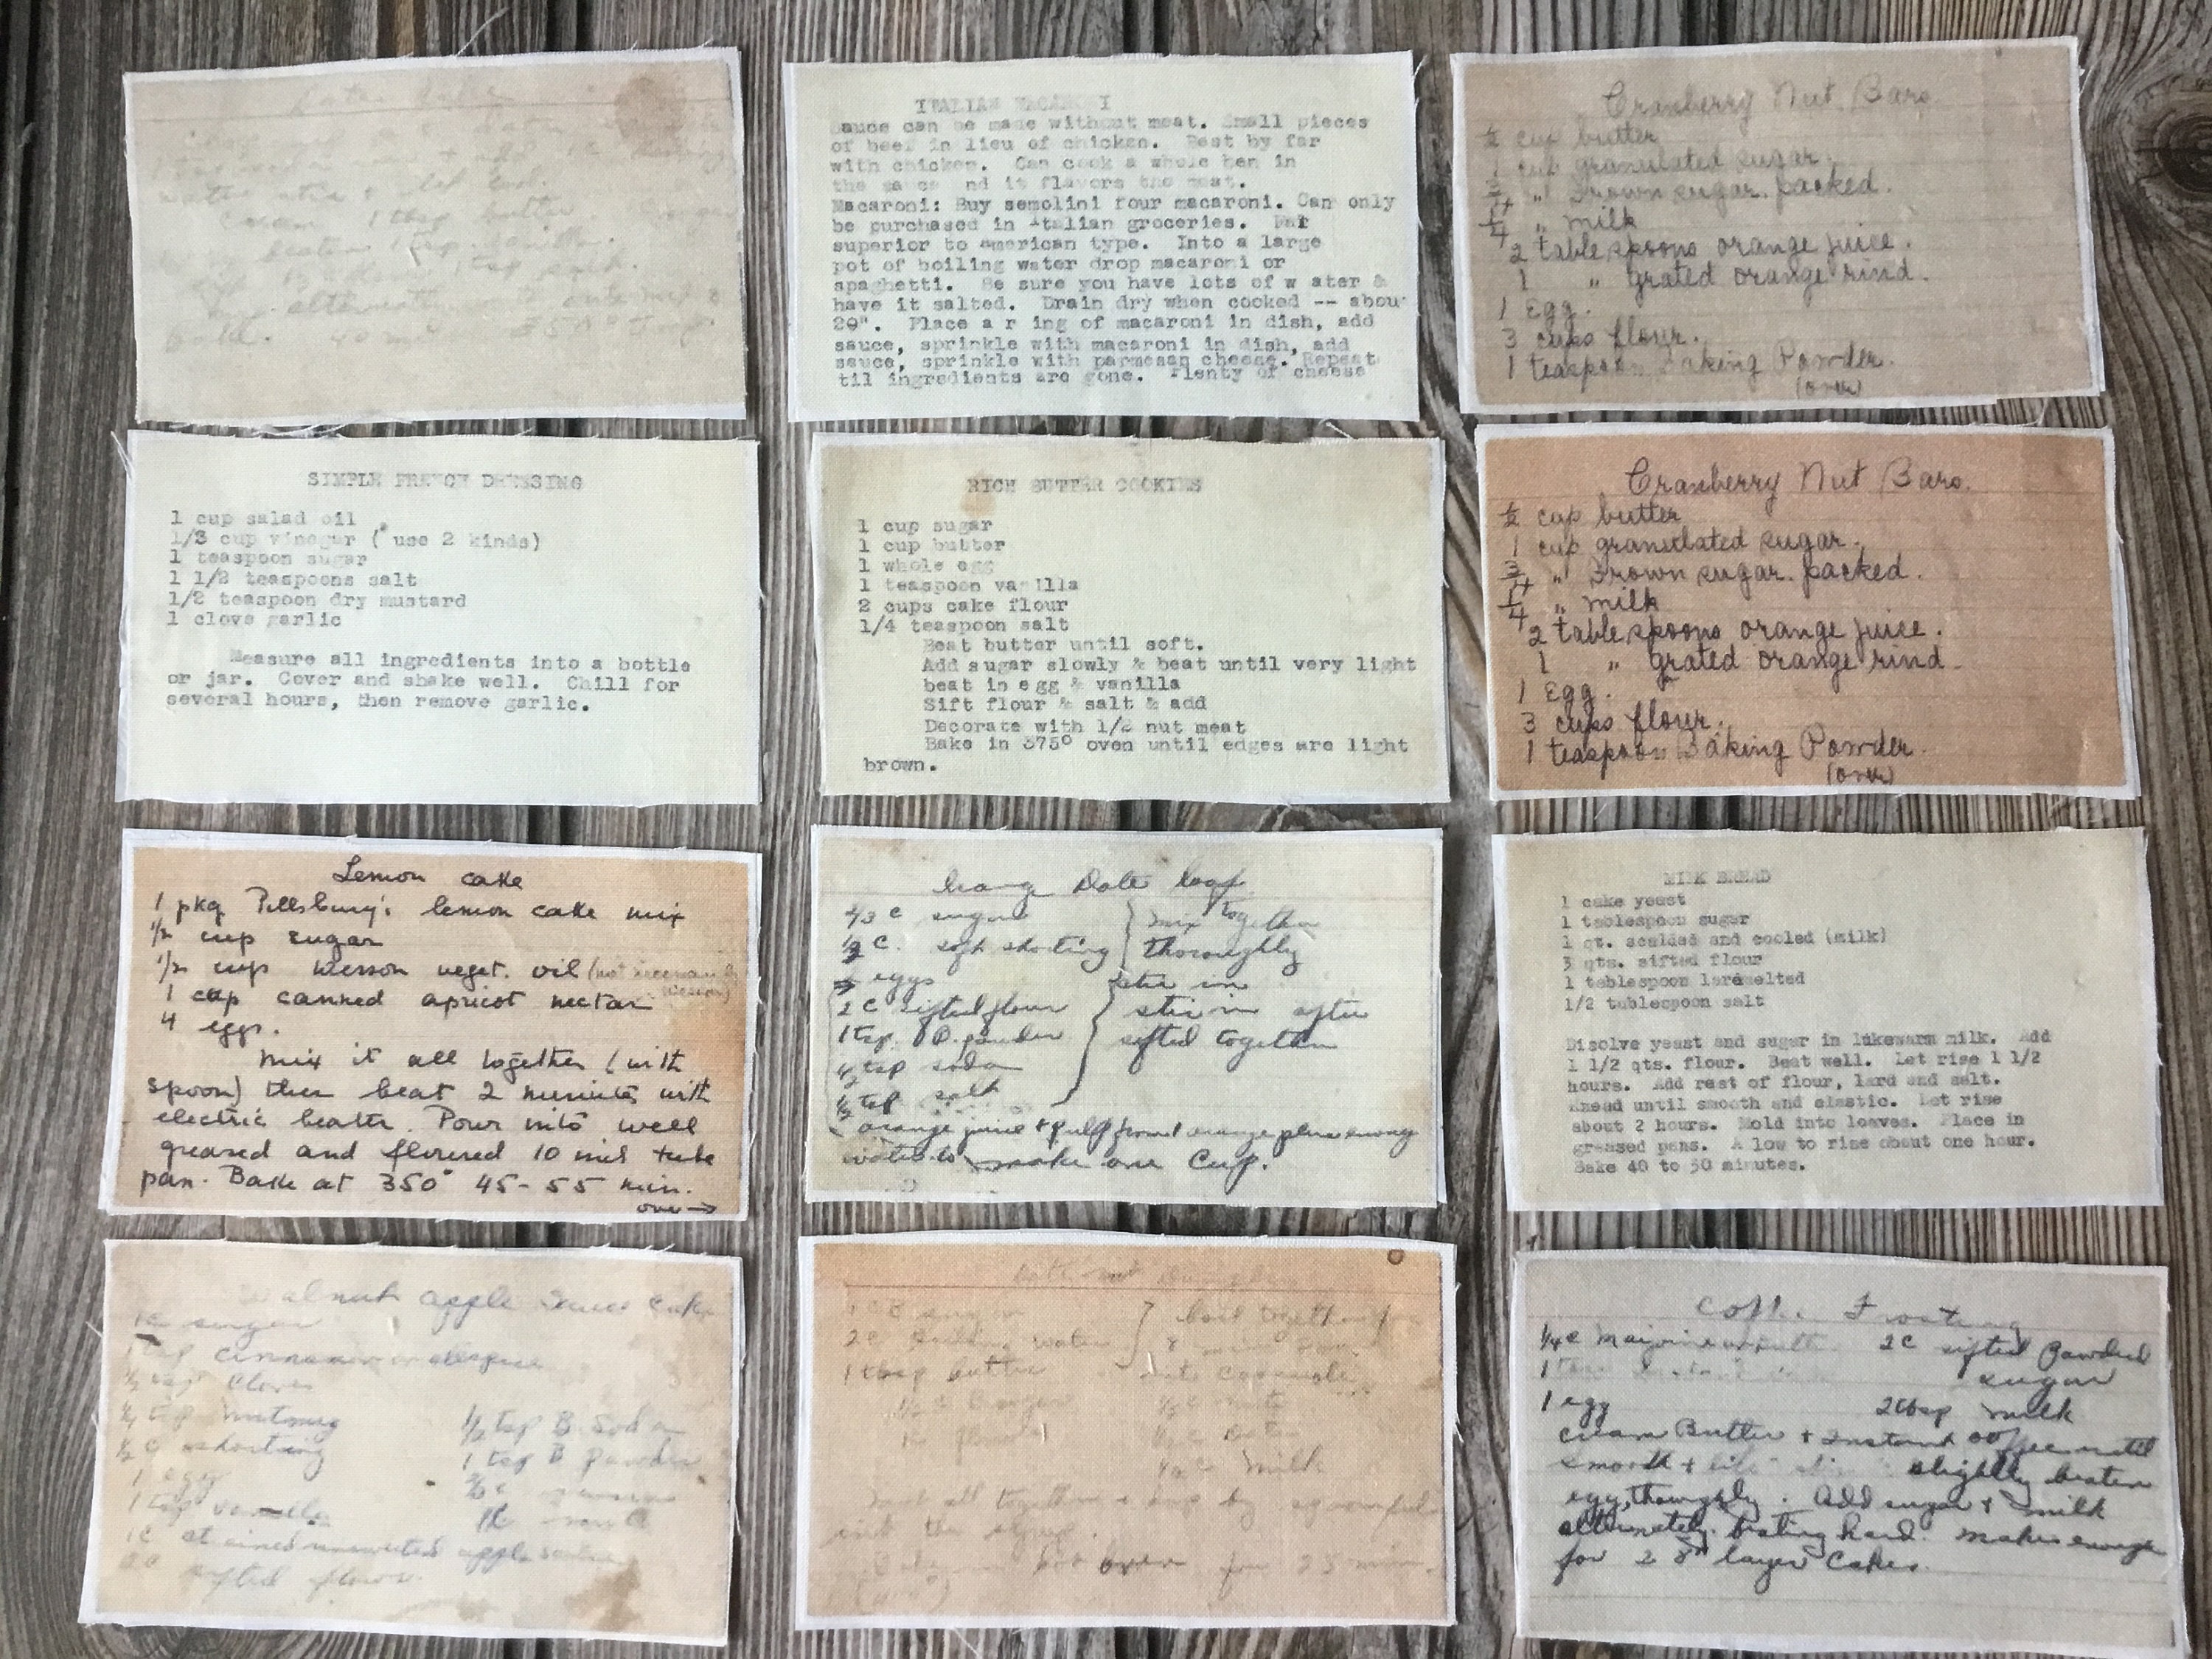 Date
1 tbsp butter
beaten 1 tsp. vanilla.
1 tsp salt.
alternately
Bake. 40 min 350°
ITALIAN MACARONI
Sauce can be made without meat. Small pieces
of beef in lieu of chicken. Best by far
with chicken. Can cook a whole hen in
the sauce nd it flavors the meat.
Macaroni: Buy semolini four macaroni. Can only
be purchased in Italian groceries. Far
superior to american type. Into a large
pot of boiling water drop macaroni or
spaghetti. Be sure you have lots of w ater &
have it salted. Drain dry when cooked -- abou
20". Place a r ing of macaroni in dish, add
sauce, sprinkle with macaroni in dish, add
sauce, sprinkle with parmesan cheese. Repeat
til ingredients are gone. Plenty of cheese
Cranberry Nut Bars.
1/2 cup butter
1 cup granulated sugar.
3/4 " Brown sugar. packed.
1/4 " milk
2 tablespoons orange juice.
1 " grated orange rind.
1 Egg.
3 cups flour.
1 teaspoon Baking Powder.
(over)
SIMPLE FRENCH DRESSING
1 cup salad oil
1/3 cup vinegar ( use 2 kinds)
1 teaspoon sugar
1 1/2 teaspoons salt
1/2 teaspoon dry mustard
1 clove garlic
Measure all ingredients into a bottle
or jar. Cover and shake well. Chill for
several hours, then remove garlic.
RICH BUTTER COOKIES
1 cup sugar
1 cup butter
1 whole egg
1 teaspoon vanilla
2 cups cake flour
1/4 teaspoon salt
Beat butter until soft.
Add sugar slowly & beat until very light
beat in egg & vanilla
Sift flour & salt & add
Decorate with 1/2 nut meat
Bake in 375° oven until edges are light
brown.
Cranberry Nut Bars.
1/2 cup butter
1 cup granulated sugar.
3/4 " Brown sugar. packed.
1/4 " milk
2 tablespoons orange juice.
1 " grated orange rind.
1 Egg.
3 cups flour.
1 teaspoon Baking Powder.
(over)
Lemon cake
1 pkg Pillsbury's lemon cake mix
1/2 cup sugar
1/2 cup Wesson veget. oil (not necessarily
Wesson)
1 cup canned apricot nectar
4 eggs.
Mix it all together (with
spoon) then beat 2 minutes with
electric beater. Pour into well
greased and floured 10 inch tube
pan. Bake at 350° 45-55 min.
over →
Orange Date loaf
2/3 C sugar } mix together
1/3 C. soft shorting } thoroughly
eggs stir in
2 C sifted flour } stir in after
1 tsp. B. powder sifted together
1/2 tsp soda
1/2 tsp salt
orange juice + pulp from 1 orange plus enough
water to make one Cup.
MILK BREAD
1 cake yeast
1 tablespoon sugar
1 qt. scalded and cooled (milk)
3 qts. sifted flour
1 tablespoon lard melted
1/2 tablespoon salt
Disolve yeast and sugar in lukewarm milk. Add
1 1/2 qts. flour. Beat well. Let rise 1 1/2
hours. Add rest of flour, lard and salt.
Knead until smooth and elastic. Let rise
about 2 hours. Mold into loaves. Place in
greased pans. A low to rise about one hour.
Bake 40 to 50 minutes.
Walnut apple Sauce Cake
1C sugar
1 tsp cinnamon or allspice
1/2 tsp Cloves
1/2 tsp nutmeg 1/2 tsp B. Soda
1/2 C shorting 1 tsp B Powder
1 egg
1 tsp vanilla
1C strained unsweetened apple sauce
2C sifted flour.
Date nut Dumplings
1 C B sugar } boil together
2C boiling water
1 tbsp butter into casserole
1/2 C B sugar 1/2 C nuts
1C flour 1/2 C dates
1/2 C Milk
all together + drop by spoonful
into the syrup.
oven for 25 min.
(400°)
Coffee Frosting
1/4 C 2C sifted Powdered
1 sugar
1 egg 2 tbsp milk
cream Butter + Instant coffee until
smooth + slightly beaten
egg, thoroughly. Add sugar + milk
alternately, beating hard. Makes enough
for 2 8" layer Cakes.